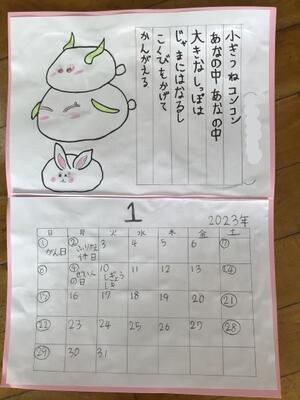 小ぎつねコンコン
あなの中 あなの中
大きなしっぽは
じゃまにはなるし
こくびをかげて
かんがえる
1
2023年
日 月 火 水 木 金 土
1 がん日 2 ふりかえ休日 3 4 5 6 7
8 9 せいじんの日 10 しぎょうしき 11 12 13 14
15 16 17 18 19 20 21
22 23 24 25 26 27 28
29 30 31